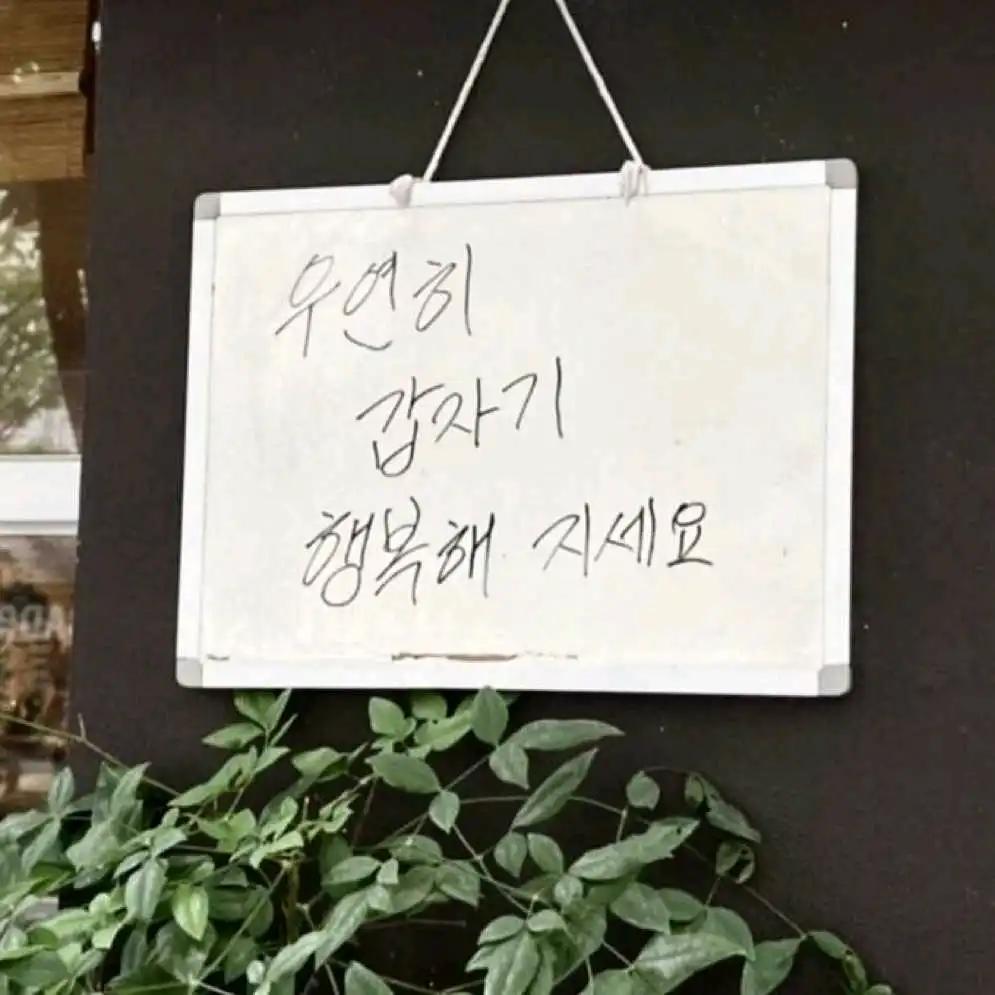 우연히
갑자기
행복해 지세요